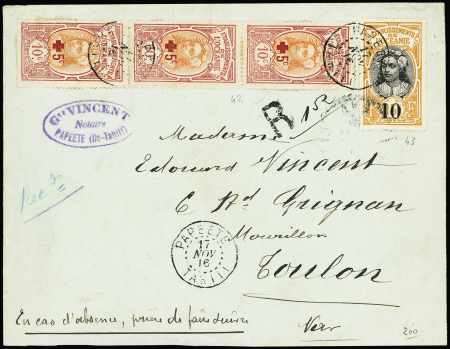 ETABLISSEMENTS DE L'OCEANIE
10c 10c
+5c
10c 10c
+5c
10c 10c
+5c
ETABLISSEMENTS
DE
L'OCEANIE
10
42
43
R
152
Gve VINCENT
Notaire
PAPEETE (Ile-Tahiti)
Madame
Edouard Vincent
6 Bd Grignan
Mourillon
Toulon
Var
PAPEETE
17
NOV
16
TAHITI
En cas d'absence, prière de faire suivre
200